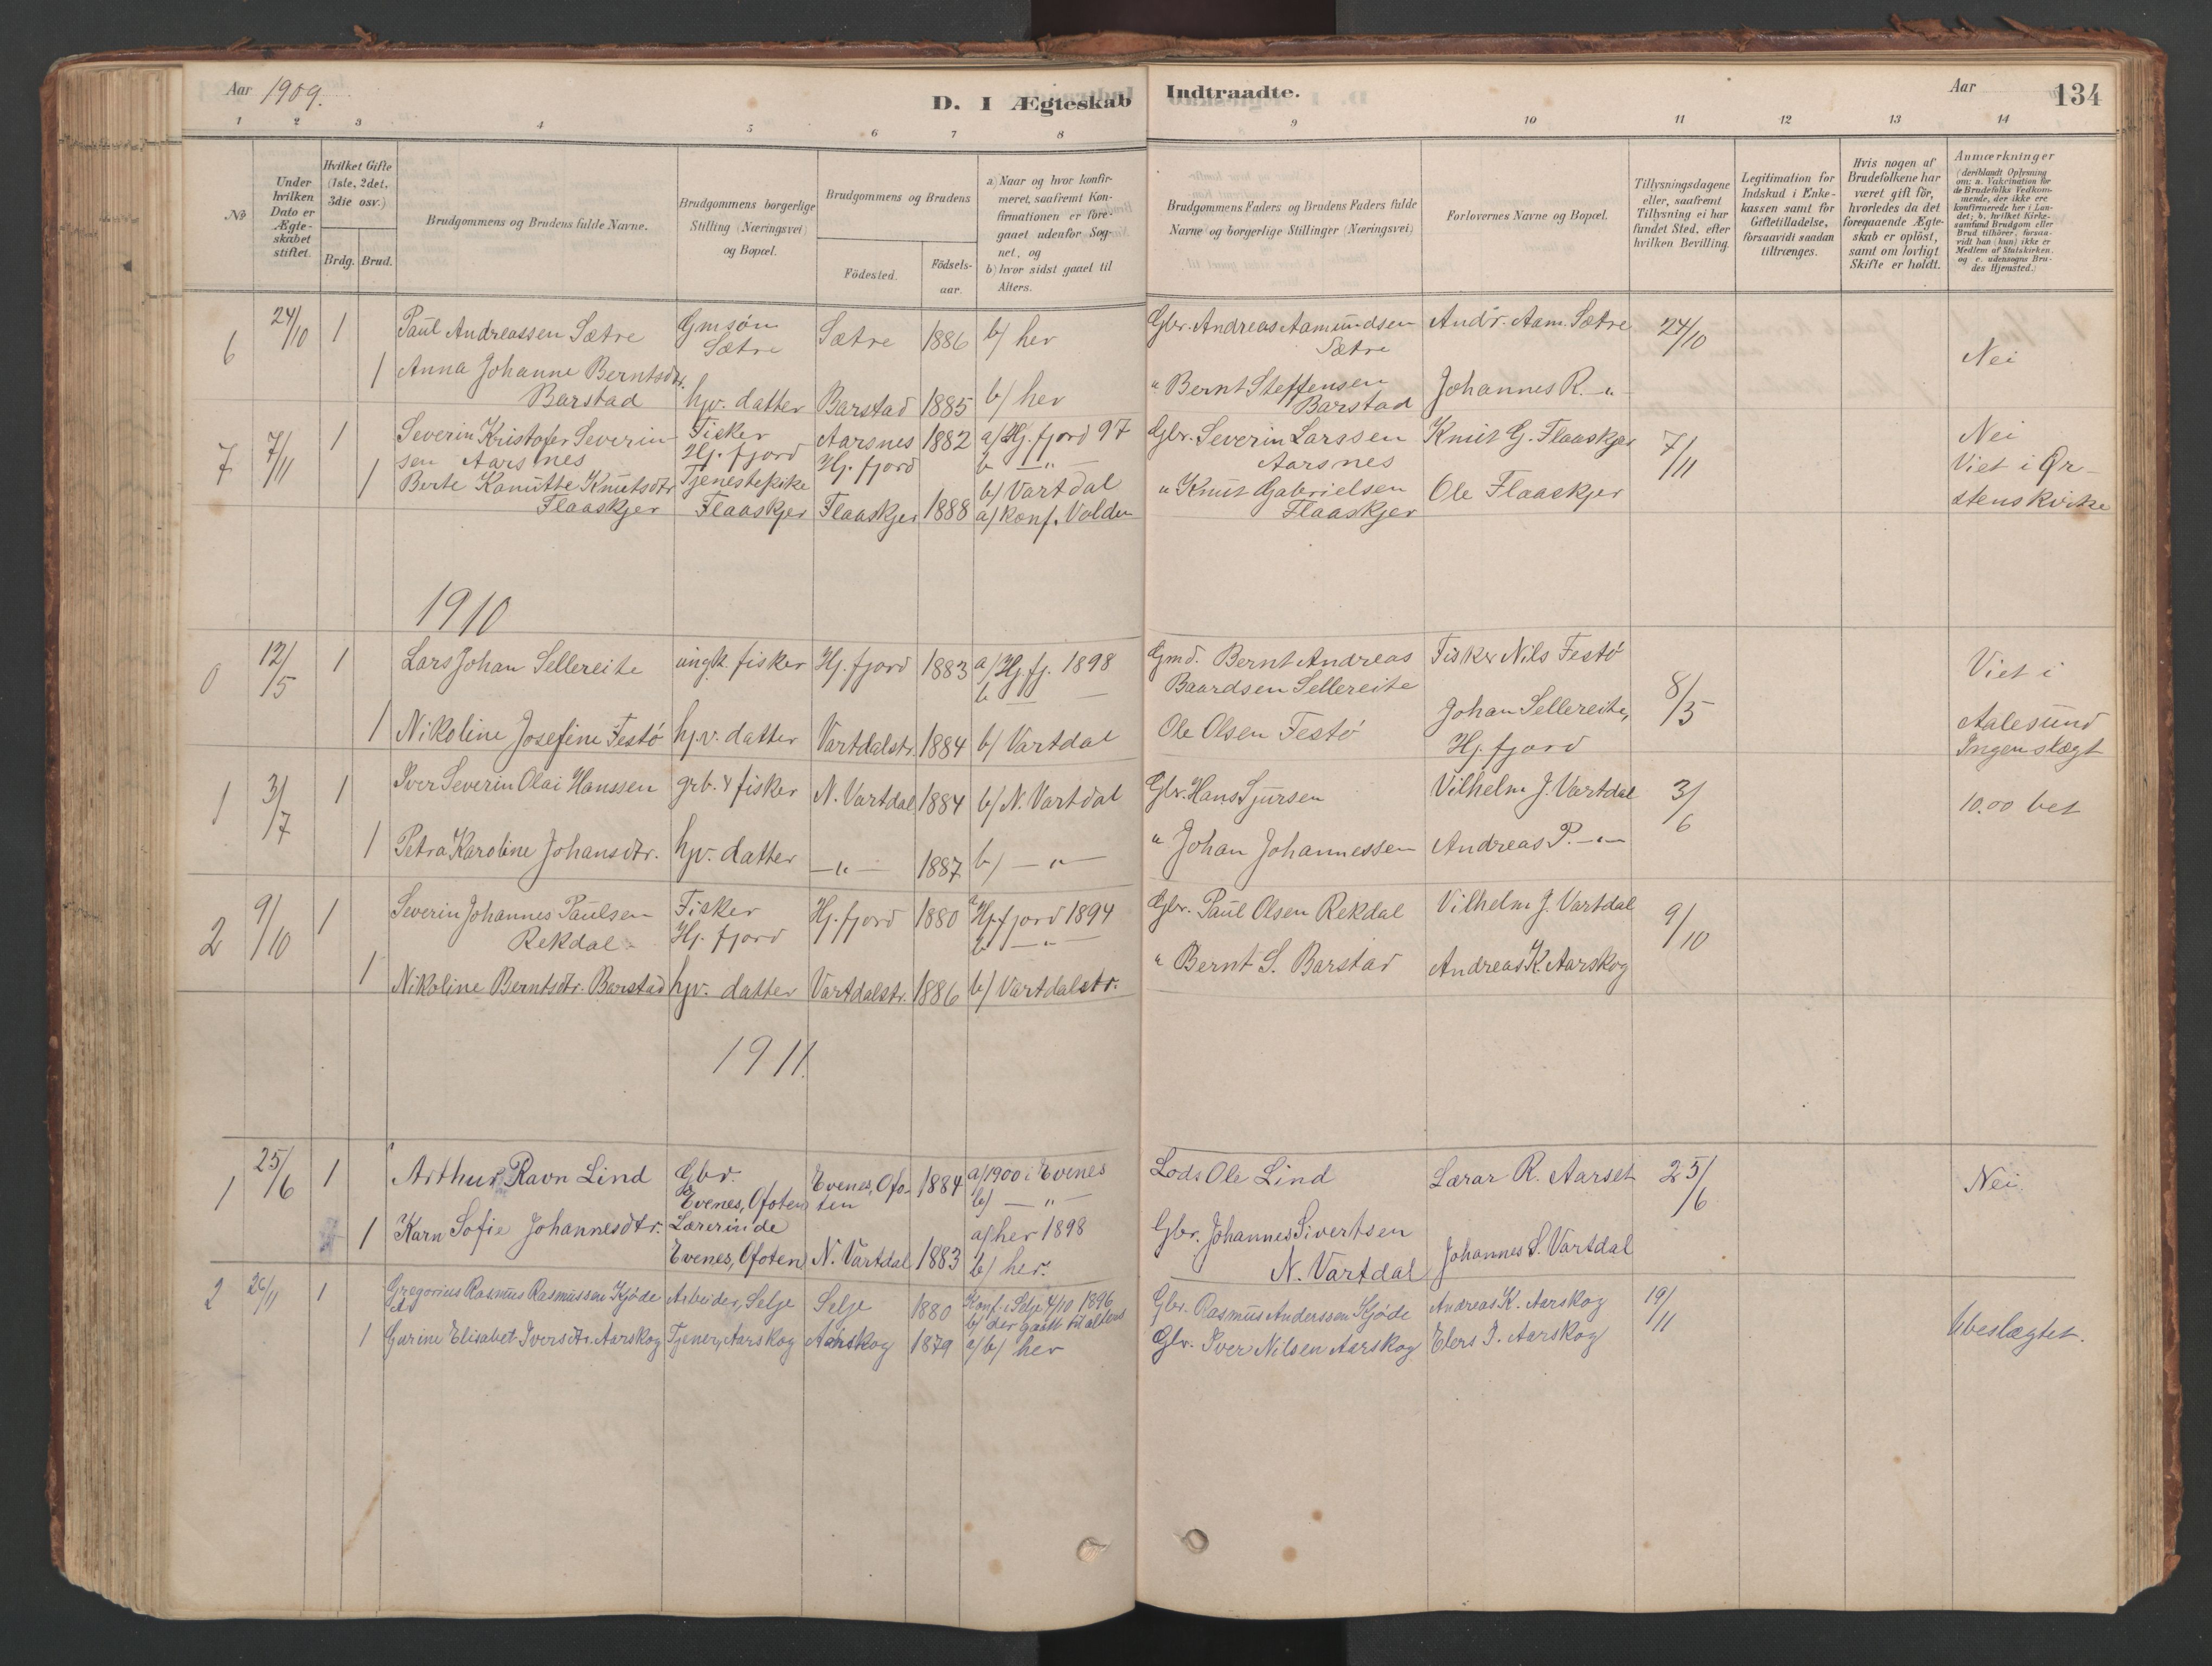 Aar 1909.
D. I Ægteskab Indtraadte.
Aar
134
1 2 3 4 5 6 7 8 9 10 11 12 13 14
No
Under hvilken Dato er Ægteskabet stiftet.
Hvilket Gifte (1ste, 2det, 3die osv.)
Brdg. Brud.
Brudgommens og Brudens fulde Navne.
Brudgommens borgerlige Stilling (Næringsvei) og Bopæl.
Brudgommens og Brudens
Födested.
Födsels-aar.
a) Naar og hvor konfirmeret, saafremt Konfirmationen er foregaaet udenfor Sognet, og
b) hvor sidst gaaet til Alters.
Brudgommens Faders og Brudens Faders fulde Navne og borgerlige Stillinger (Næringsvei)
Forlovernes Navne og Bopæl.
Tillysningsdagene eller, saafremt Tillysning ei har fundet Sted, efter hvilken Bevilling.
Legitimation for Indskud i Enkekassen samt for Giftetilladelse, forsaavidt saadan tiltrænges.
Hvis nogen af Brudefolkene har været gift för, hvorledes da det foregaaende Ægteskab er oplöst, samt om lovligt Skifte er holdt.
Anmærkninger (deriblandt Oplysning om: a. Vakcination for de Brudefolks Vedkommende, der ikke ere konfirmerede her i Landet; b. hvilket Kirkesamfund Brudgom eller Brud tilhörer, forsaavidt han (hun) ikke er Medlem af Statskirken. og c. udensogns Brudes Hjemsted.)
6 24/10 1 Paul Andreassen Sætre Gmsøn Sætre Sætre 1886 b/ her Gbr. Andreas Aamundsen Sætre Andr. Aam. Sætre 24/10 Nei
1 Anna Johanne Berntsdtr. Barstad hjv. datter Barstad 1885 b/ her " Bernt Steffensen Barstad Johannes R. -"-
7 7/11 1 Severin Kristofer Severinsen Aarsnes Fisker Hj. fjord Aarsnes Hj. fjord 1882 a/ Hj. fjord 97 b -"- Gbr. Severin Larssen Aarsnes Knut G. Flaaskjer 7/11 Nei Viet i Ørstenskirke
1 Berte Kanutte Knutsdtr Flaaskjer Tjenestepike Flaaskjer Flaaskjer 1888 b/ Vartdal a/ konf. Volden " Knut Gabrielsen Flaaskjer Ole Flaaskjer
1910
0 12/5 1 Lars Johan Sellereite ungk. fisker Hj. fjord 1883 a/ Hj. fj. 1898 b -"- Gmd. Bernt Andreas Baardsen Sellereite Fisker Nils Festø 8/5 Viet i Aalesund
1 Nikoline Josefine Festø hjv. datter Vartdalstr. 1884 b/ Vartdal Ole Olsen Festø Johan Sellereite, Hj. fjord Ingen slægt
1 3/7 1 Iver Severin Olai Hanssen grb. & fisker N. Vartdal 1884 b/ N. Vartdal Gbr. Hans Sjursen Vilhelm J. Vartdal 3/6 10.00 bet
1 Petra Karoline Johansdtr. hjv. datter -"- 1887 b/ -"- " Johan Johannessen Andreas P. -"-
2 9/10 1 Severin Johannes Paulsen Rekdal Fisker Hj. fjord Hj. fjord 1880 a/ Hj. fjord 1894 b -"- Gbr. Paul Olsen Rekdal Vilhelm J. Vartdal 9/10
1 Nikoline Berntsdtr. Barstad hjv. datter Vartdalstr. 1886 b/ Vartdalstr. " Bernt S. Barstad Andreas K. Aarskog
1911.
1 25/6 1 Arthur Ravn Lind Gbr. Evenes, Ofoten Evenes, Ofoten 1884 a/ 1900 i Evenes b/ -"- Lods Ole Lind Lærar R. Aarset 25/6 Nei
1 Karn Sofie Johannesdtr. Lærerinde Evenes, Ofoten N. Vartdal 1883 a/ her 1898 b/ her. Gbr. Johannes Sivertsen N. Vartdal Johannes S. Vartdal
2 26/11 1 Gregorius Rasmus Rasmussen Kjøde Arbeider, Selje Selje 1880 Konf. i Selje 4/10 1896 b/ der gaatt til alters Gbr. Rasmus Anderssen Kjøde Andreas K. Aarskog 19/11 Ubeslægtet.
1 Gurine Elisabet Iversdtr. Aarskog Tjener, Aarskog Aarskog 1879 a/ b/ her Gbr. Iver Nilsen Aarskog Elers I. Aarskog